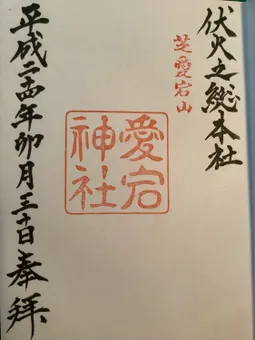 伏火之総本社
芝愛宕山
愛宕神社
平成二十四年卯月三十日奉拝